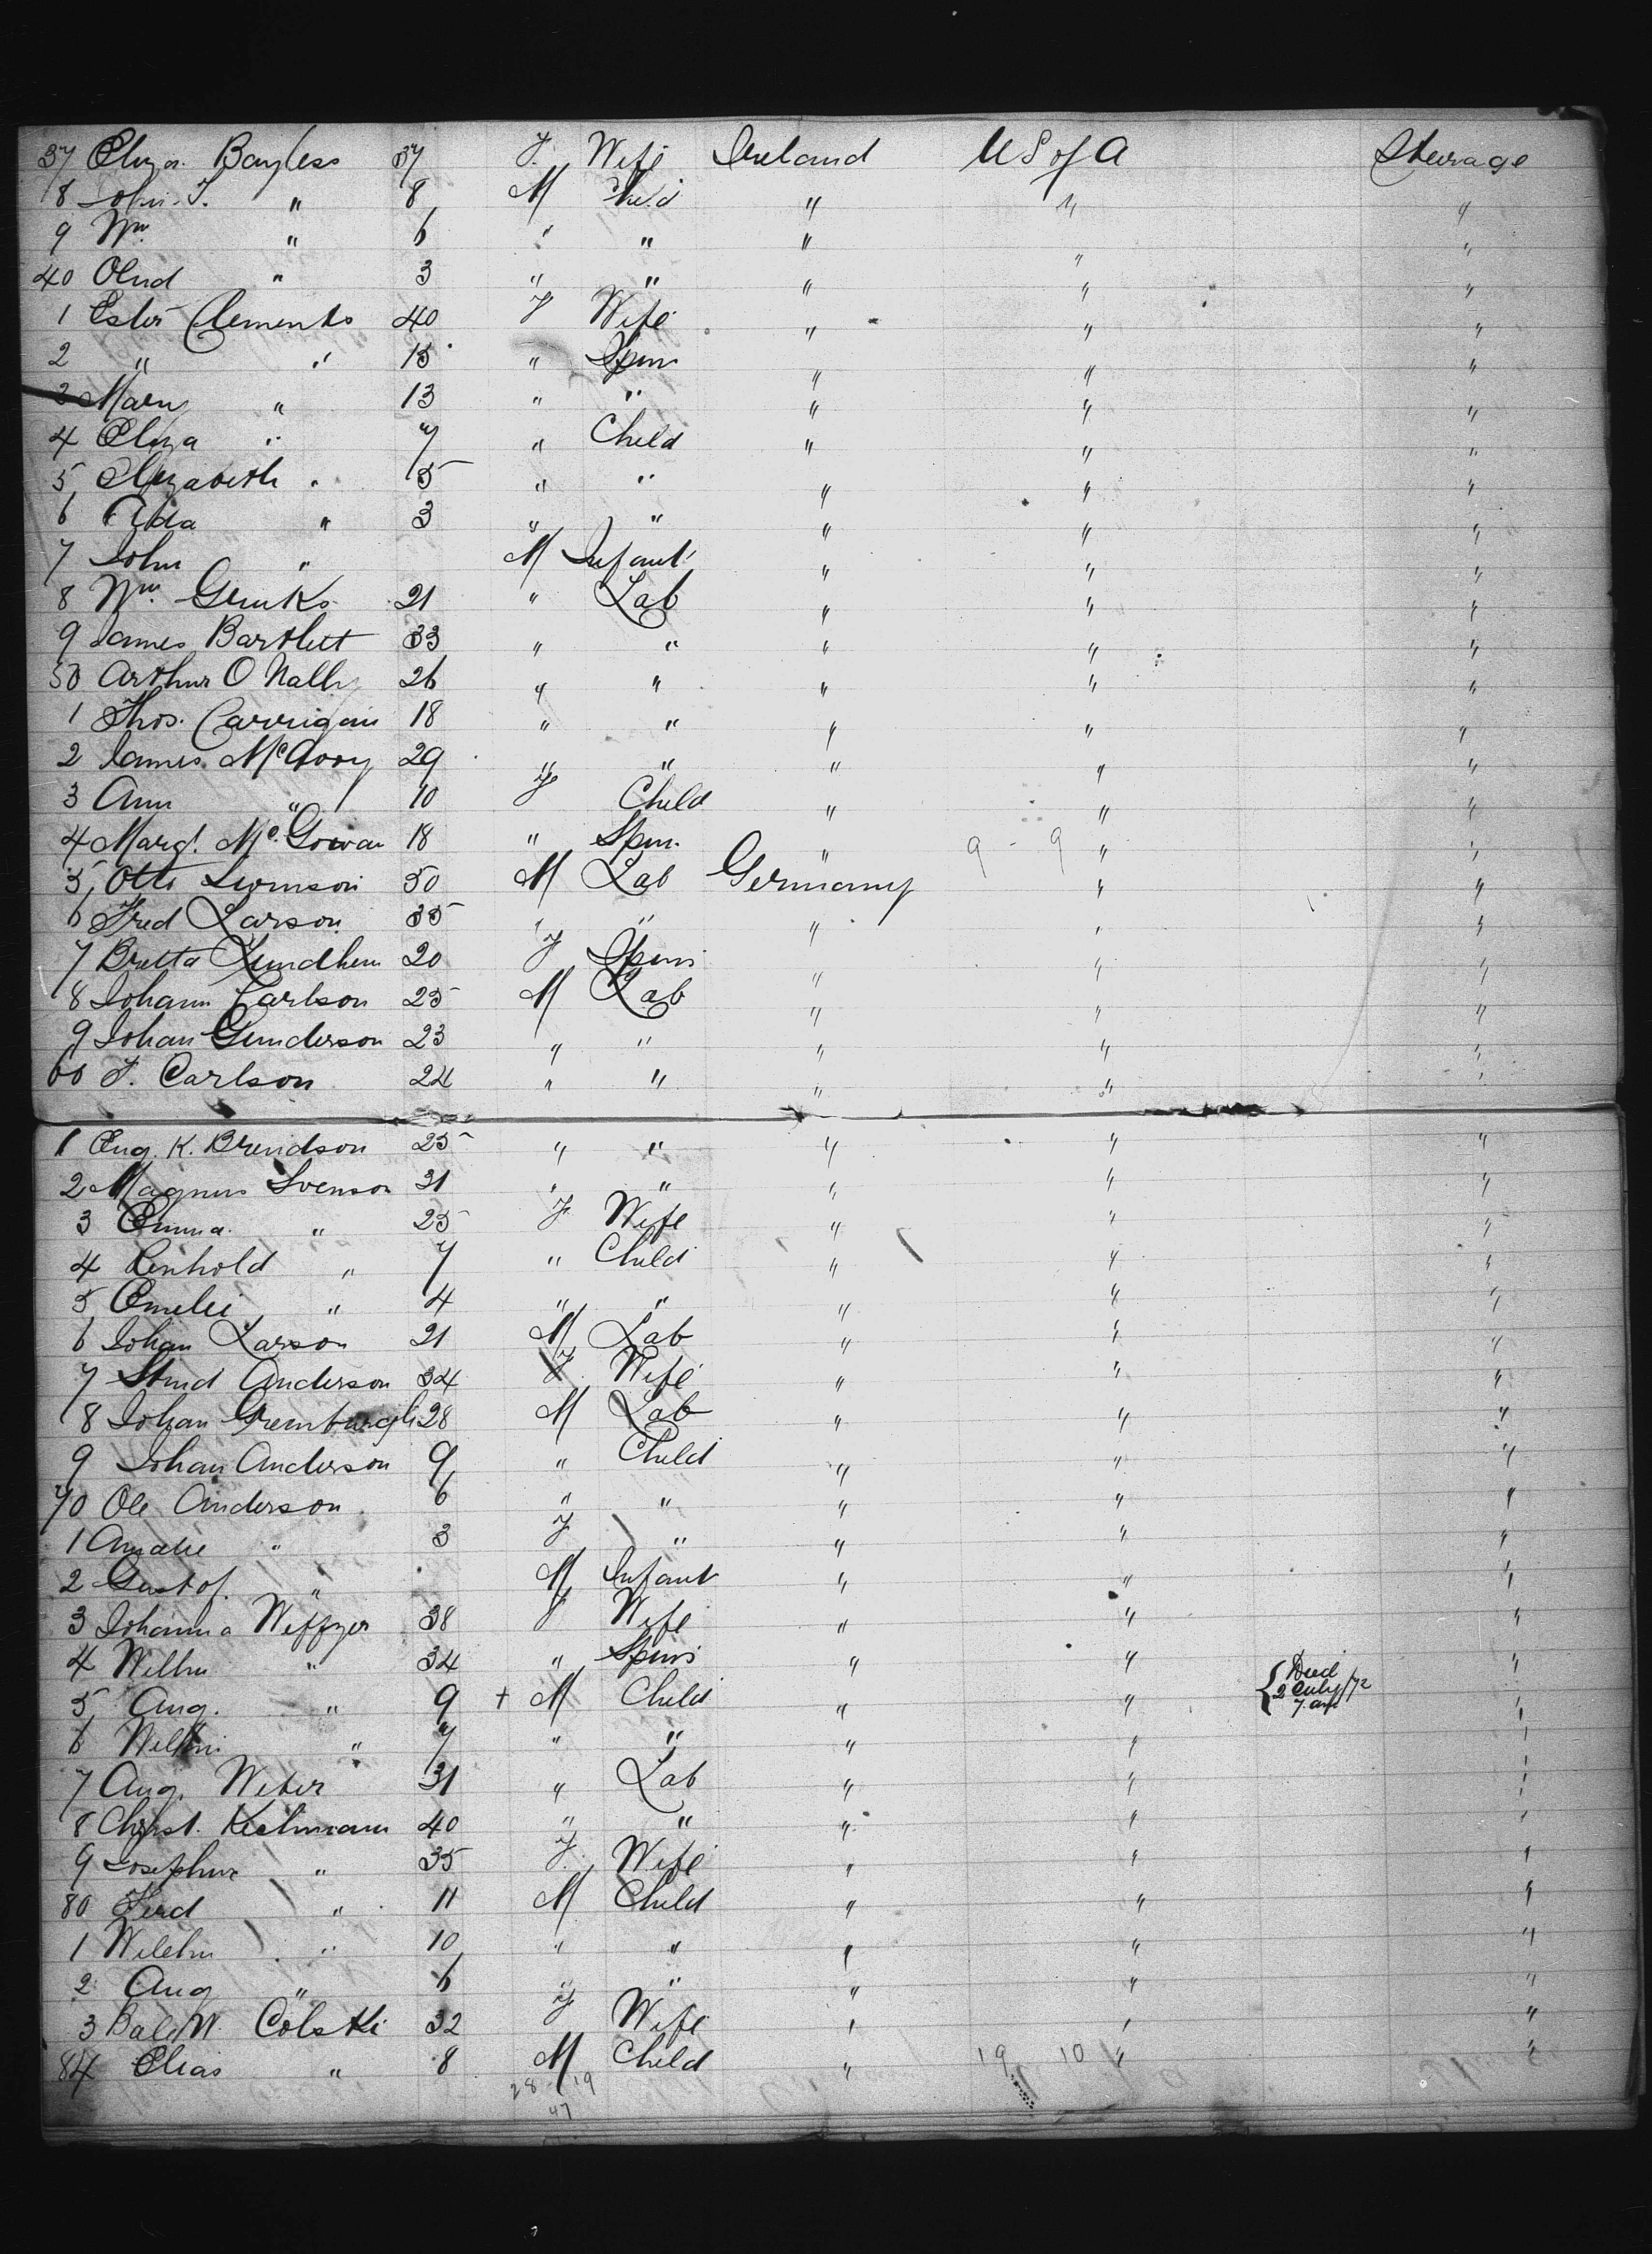 37 Eliza Bayless 37 F. Wife Ireland U S of A Steerage
8 John T. " 8 M Child " " "
9 Wm " 6 " " " " "
40 " 3 " " " " "
1 Ester Clements 40 F Wife " " "
2 " " 15 " Spin " " "
3 Mary " 13 " " " " "
4 Eliza " 7 " Child " " "
5 Elizabeth " 5 " " " " "
6 Ada " 3 " " " " "
7 John " M Infant " " "
8 Wm 21 " Lab " " "
9 James Bartlett 33 " " " " "
50 Arthur O Nally 26 " " " " "
1 Thos. Carrigan 18 " " " " "
2 James McAvoy 29 " " " " "
3 Ann " 10 F Child " " "
4 Margt. McGowan 18 " Spin. " 9 - 9 " "
5 Otto 50 M Lab Germany " "
6 Fred Larson 35 " " " " "
7 Britta 20 F Spin " " "
8 Johann Carlson 25 M Lab " " "
9 Johan Gunderson 23 " " " " "
60 F. Carlson 24 " " " " "
1 Aug. K. 25 " " " " "
2 Magnus Svenson 31 " " " " "
3 Emma " 25 F Wife " " "
4 Renhold " 7 " Child " " "
5 Emelie " 4 " " " " "
6 Johan Larson 21 M Lab " " "
7 Anderson 34 F Wife " " "
8 Johan 28 M Lab " " "
9 Johan Anderson 9 " Child " " "
70 Ole Anderson 6 " " " " "
1 Amalie " 3 F " " " "
2 Gustof " M Infant " " "
3 Johanna 38 F Wife " " "
4 Wilhm " 34 " Spin " " "
5 Aug. " 9 + M Child " " { Died 2 July/72 7. am "
6 " 7 " " " " "
7 Aug. Weber 31 " Lab " " "
8 Christ. 40 " " " " "
9 Josephine " 35 F. Wife " " "
80 Ferd " 11 M Child " " "
1 Wilehm " 10 " " " " "
2 Aug " 6 " " " " "
3 32 F Wife " " "
84 Elias " 8 M Child " 19 10 " "
28 19
47